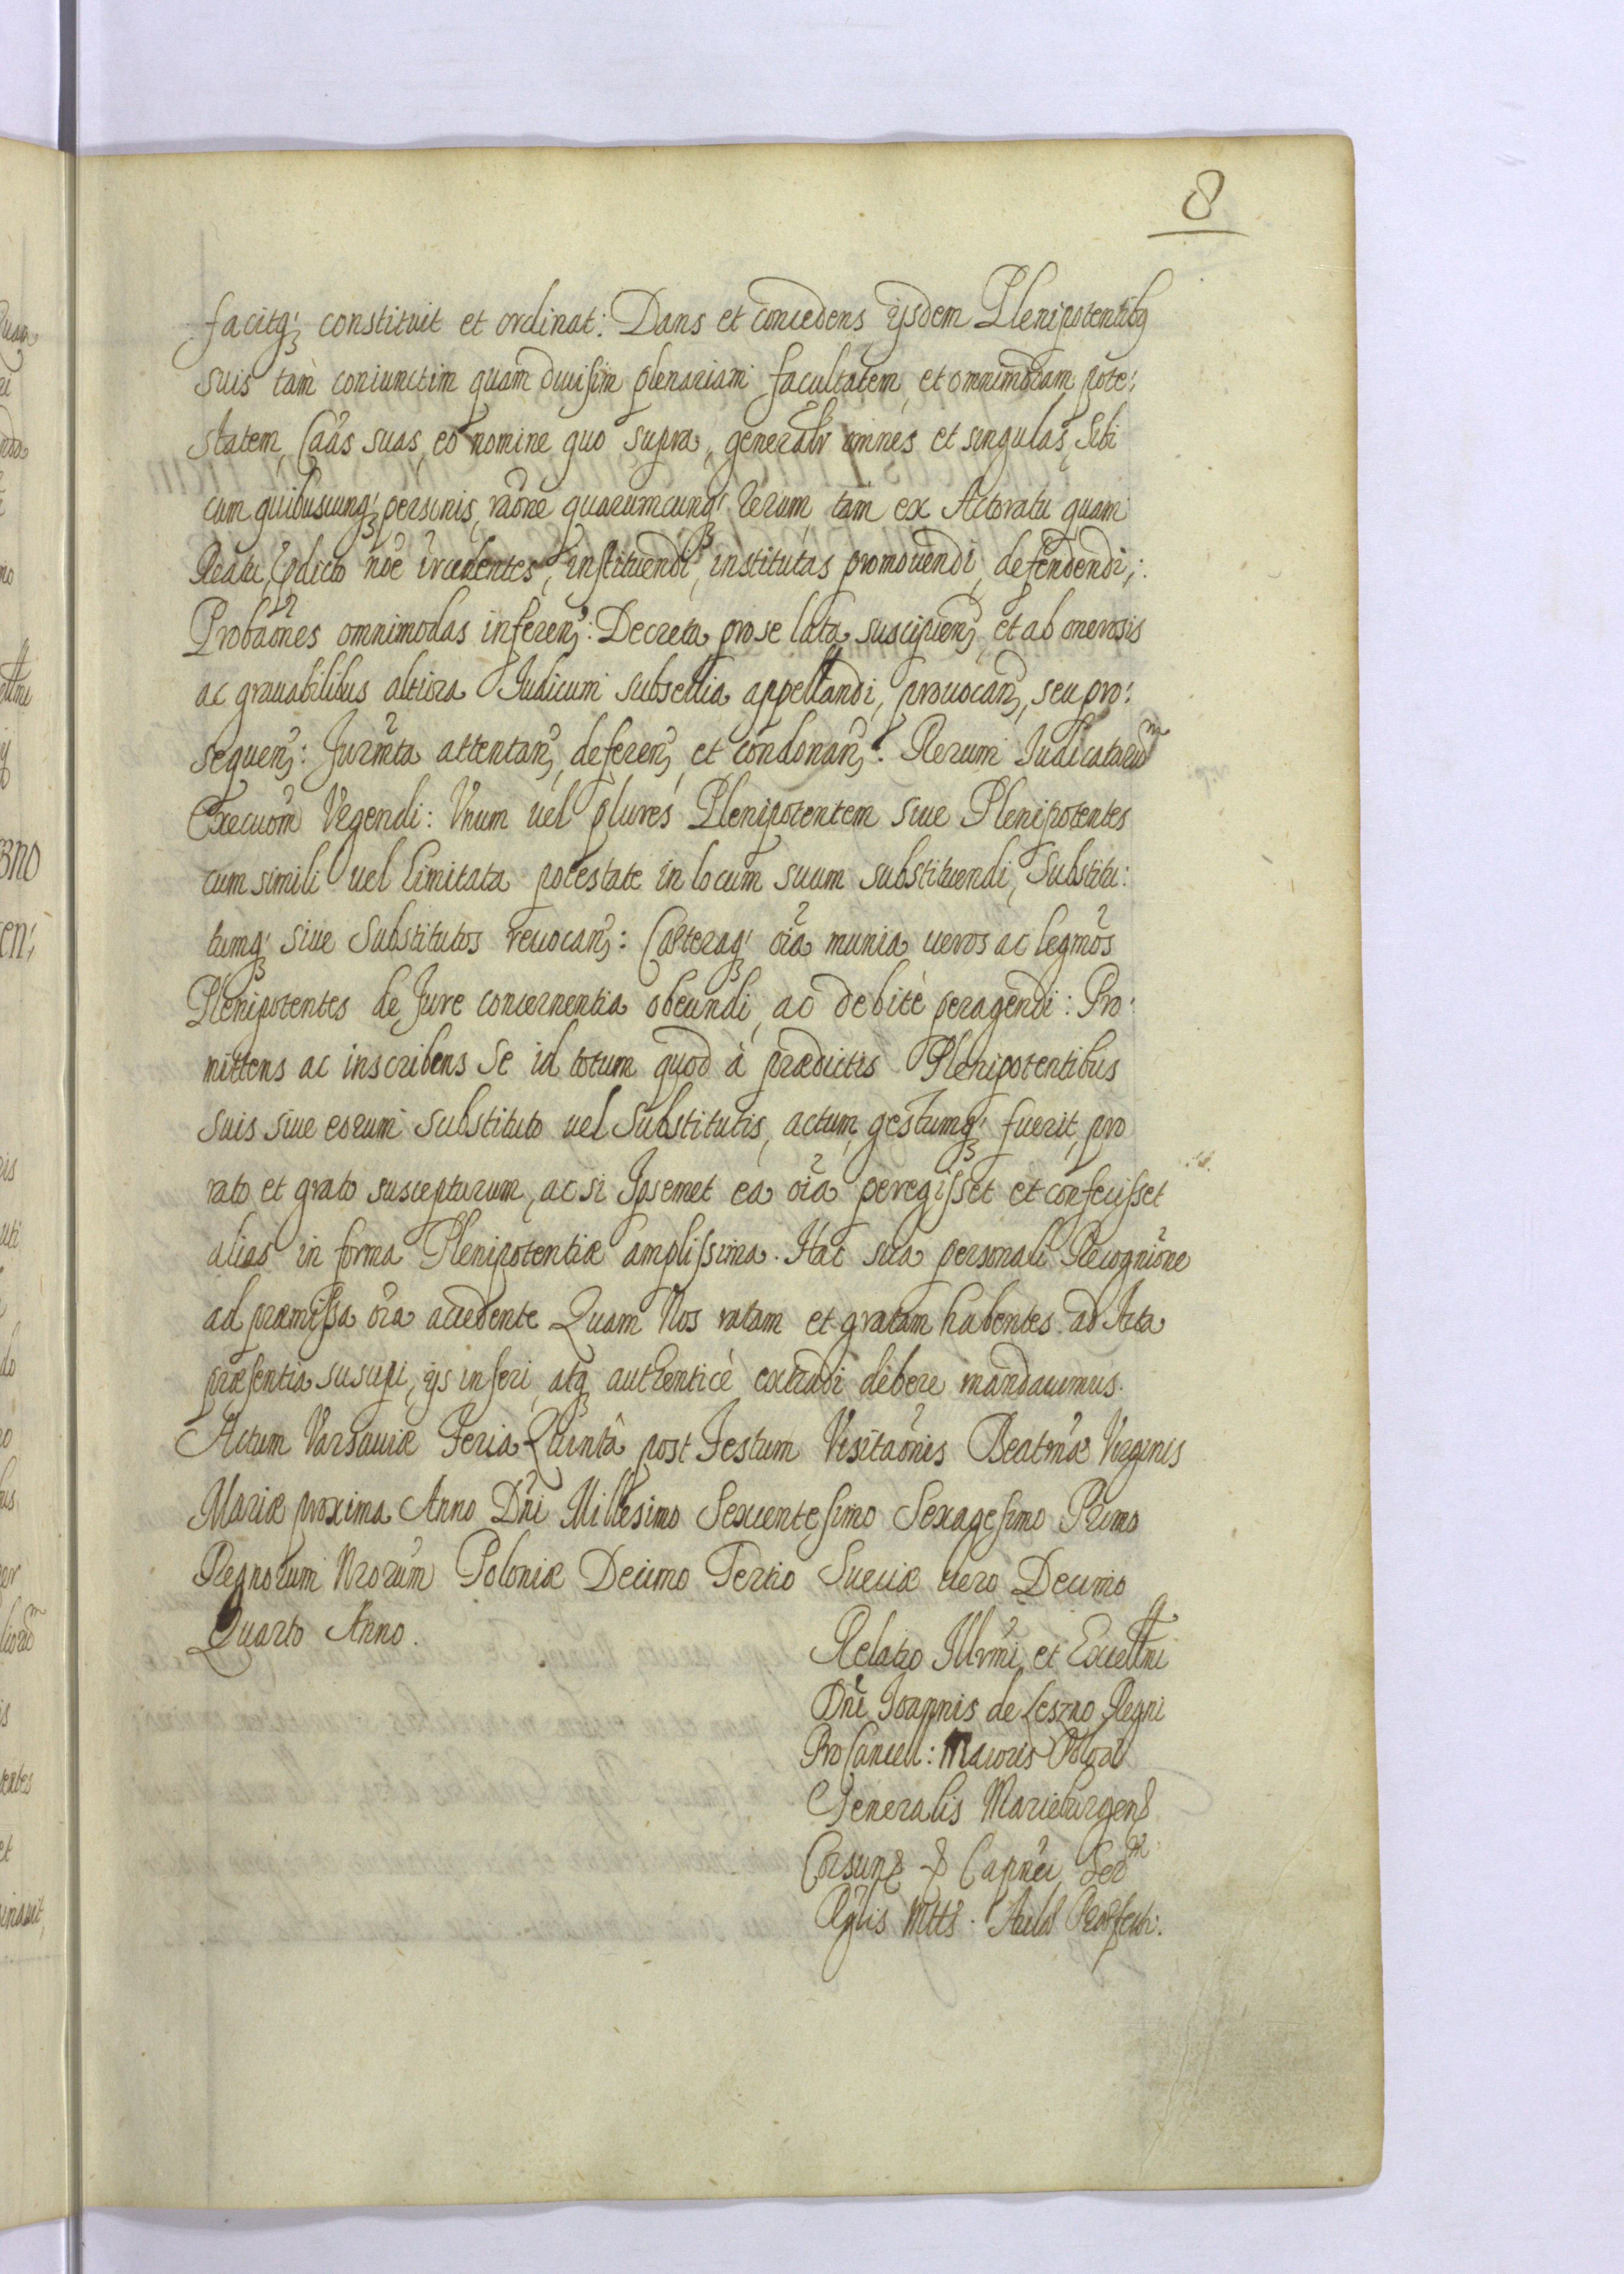 8
facitq; constituit et ordinat: Dans et concedens ijsdem Plenipotentibq
suis tàm coniunctim quam diuisim plenariam facultatem, et omnimodam pote,
statem, Caãs suas, eo nomine quo supra, generalr omnes et singulas, Sibi
cum quibuscunq; personis, raõne quarumcunq; rerum, tam ex Actoratu quam
Reatu, pdicto noẽ intendentes, instituendi, institutas promouendi, defendendi;
Probaões omnimodas inferen: Decreta, pro se lata, suscipien, et ab onerosis
ac grauabilibus altiora Iudicum subsellia appellandi, prouocan, seu pro:
sequen: Jurmta attentan, deferen, et condonan. Rerum Iudicatarum
Execuõm Vrgendi: Vnum uel plures Plenipotentem siue Plenipotentes
cum simili uel limitata potestate in locum suum substituendi, Substitu:
tumq; siue Substitutos reuocan: Cæteraq; oĩa munia ueros ac legmõs
Plenipotentes de Jure concernentia obeundi, ac debitè peragendi: Pro:
mittens ac inscribens Se id totum quod à prædictis Plenipotentibus
suis siue eorum substituto uel Substitutis, actum, gestumq; fuerit, pro
rato et grato suscepturum, ac si Ipsemet ea oĩa peregisset et confecisset
alias in forma Plenipotentiæ amplissima. Hac sua personali Recogniõne
ad præmissa oĩa accedente Quam Nos ratam et gratam habentes ad Acta
præsentia suscipi, ijs inseri, atq; authenticè extradi debere mandauimus.
Actum Varsauiæ Feria Quintâ post Festum Visitaõnis Beatmæ Virginis
Mariæ proxima Anno Dñi Millesimo Sexcentesimo Sexagesimo Primo
Regnorum Nrorum Poloniæ Decimo Tertio Sueciæ uero Decimo
Quarto Anno.
Relatio Illrmi et Excellmi
Dñi Joannis de Leszno Regni
ProCancell: Maioris Polon
Generalis Marieburgens
Corsuns & Capnei Ser
Rglis Mttis